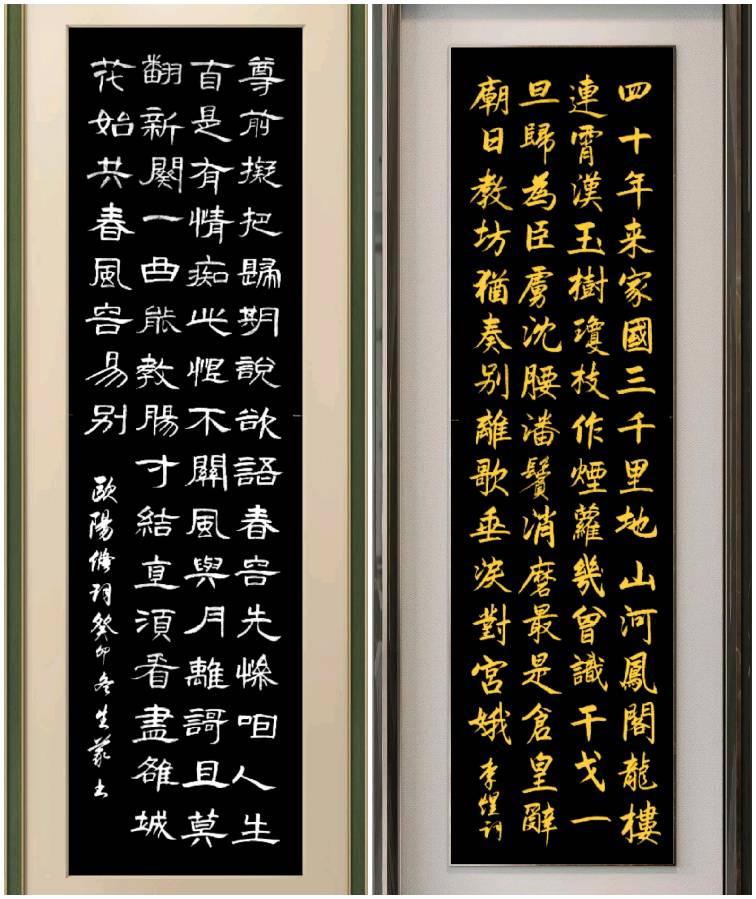 尊前擬把歸期說欲語春容先慘咽人生
自是有情痴此恨不關風與月離謌且莫
翻新闋一曲能教腸寸結直須看盡雒城
花始共春風容易別
歐陽脩詞癸卯冬
四十年来家國三千里地山河鳳閣龍樓
連霄漢玉樹瓊枝作煙蘿幾曾識干戈一
旦歸為臣虜沈腰潘鬢消磨最是倉皇辭
廟日教坊猶奏别離歌垂淚對宮娥
李煜詞